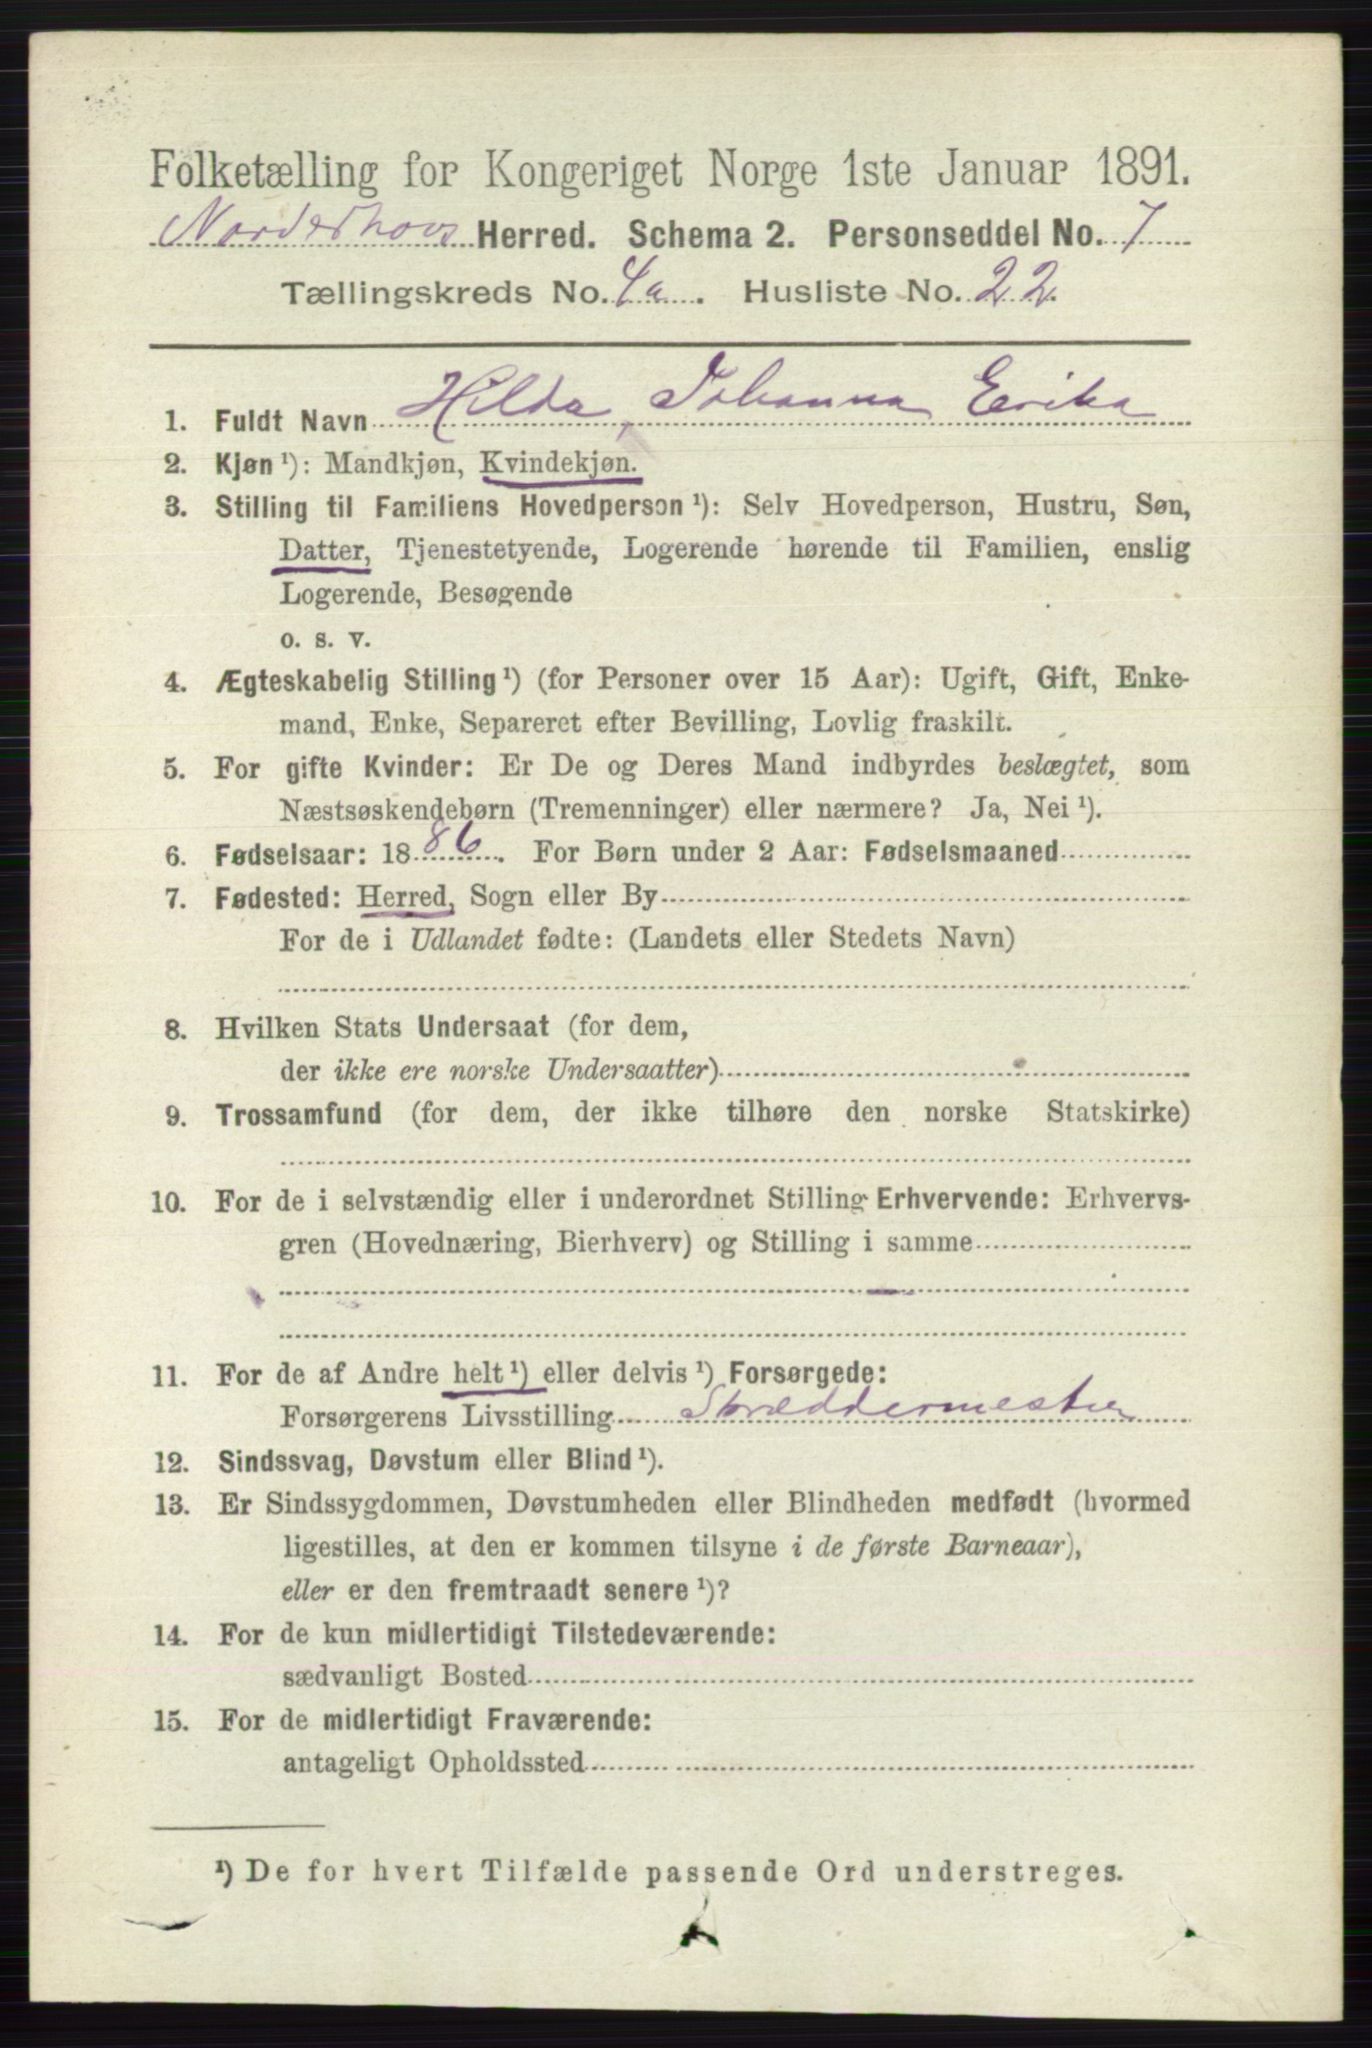 Folketælling for Kongeriget Norge 1ste Januar 1891.
Norderhovs Herred. Schema 2. Personseddel No. 7
Tællingskreds No. 4a. Husliste No. 22.
1. Fuldt Navn Hilda, Johanna Erika
2. Kjøn ¹): Mandkjøn, Kvindekjøn.
3. Stilling til Familiens Hovedperson ¹): Selv Hovedperson, Hustru, Søn,
Datter, Tjenestetyende, Logerende hørende til Familien, enslig
Logerende, Besøgende
o. s. v.
4. Ægteskabelig Stilling ¹) (for Personer over 15 Aar): Ugift, Gift, Enke-
mand, Enke, Separeret efter Bevilling, Lovlig fraskilt.
5. For gifte Kvinder: Er De og Deres Mand indbyrdes beslægtet, som
Næstsøskendebørn (Tremenninger) eller nærmere? Ja, Nei ¹).
6. Fødselsaar: 1886. For Børn under 2 Aar: Fødselsmaaned
7. Fødested: Herred, Sogn eller By
For de i Udlandet fødte: (Landets eller Stedets Navn)
8. Hvilken Stats Undersaat (for dem,
der ikke ere norske Undersaatter)
9. Trossamfund (for dem, der ikke tilhøre den norske Statskirke)
10. For de i selvstændig eller i underordnet Stilling Erhvervende: Erhvervs-
gren (Hovednæring, Bierhverv) og Stilling i samme
11. For de af Andre helt ¹) eller delvis ¹) Forsørgede:
Forsørgerens Livsstilling Skræddermester
12. Sindssvag, Døvstum eller Blind ¹).
13. Er Sindssygdommen, Døvstumheden eller Blindheden medfødt (hvormed
ligestilles, at den er kommen tilsyne i de første Barneaar),
eller er den fremtraadt senere ¹)?
14. For de kun midlertidigt Tilstedeværende:
sædvanligt Bosted
15. For de midlertidigt Fraværende:
antageligt Opholdssted
¹) De for hvert Tilfælde passende Ord understreges.